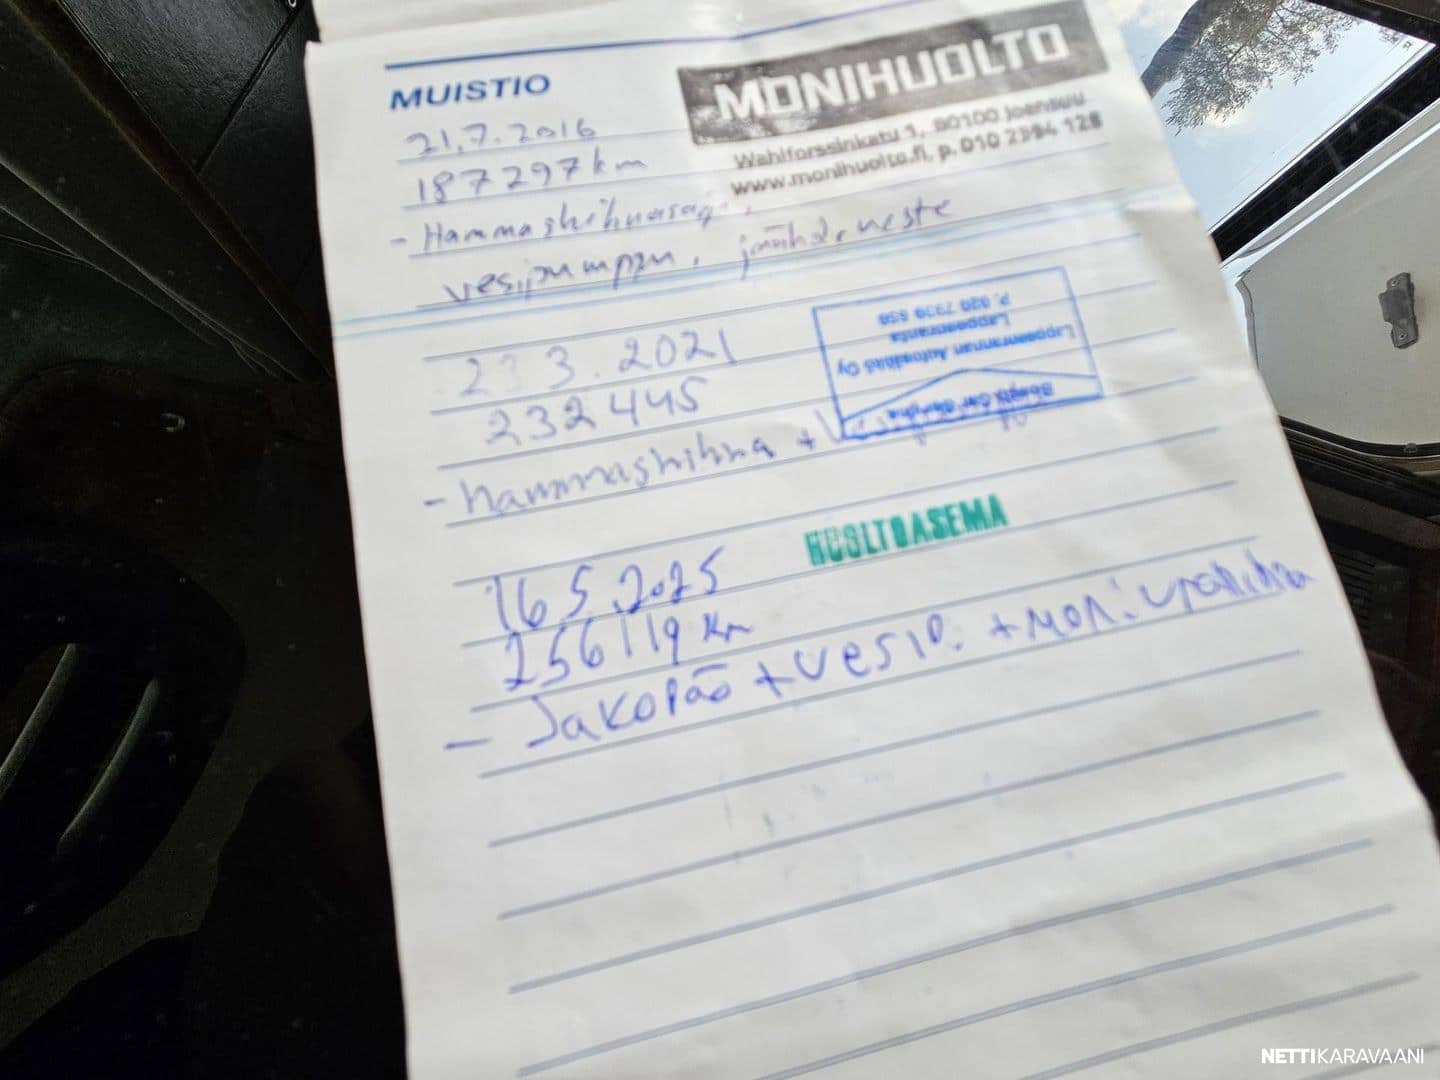 MUISTIO
MONIHUOLTO
Wahlforssinkatu 1, 80100 Joensuu
www.monihuolto.fi, p. 010 2394 128
21.7.2016
187297 km
- Hammashihnasarja,
vesipumppu, jäähd.neste
23 3.2021
232445
Bosch Car Service
Lappeenrannan Autosähkö Oy
Lappeenranta
P. 020 7939 650
- hammashihna +
HUOLTOASEMA
16 5.2025
256119 km
- Jakopää + vesip. + Moniurahihna
NETTIKARAVAANI